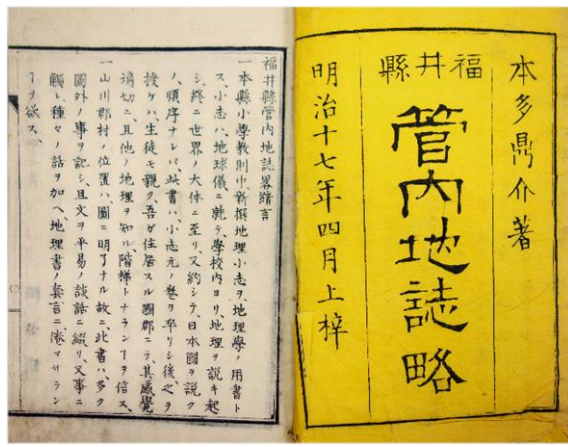 本多鼎介著
福井縣
管内地誌略
明治十七年四月上梓
福井縣管内地誌畧緒言
一本縣小學教則中新撰地理小志ヲ、地理學ノ用書ト
ス、小志ハ、地球儀ニ就テ、學校内ヨリ、地理ヲ説キ起
シ、終ニ世界ノ大体ニ至リ、又約シテ、日本國ヲ説ク
ノ、順序ナレバ此書ハ、小志元ノ巻ヲ卒リシ後、之ヲ
授ケハ、生徒モ親ク、吾ガ住居スル國郡ニテ、其感覺
適切ニ、且他ノ地理ヲ知ル、階梯トナランヿヲ信ス、
一山川郡村ノ位置ハ、圖ニ明了ナル故ニ、此書ハ、多ク
圖外ノ事ヲ記シ、且文ヲ平易ノ談話ニ綴リ、又事ニ
觸レ、種々ノ話ヲ加ヘ、地理書ノ套言ニ、倦マサラン
ヿヲ欲ス、